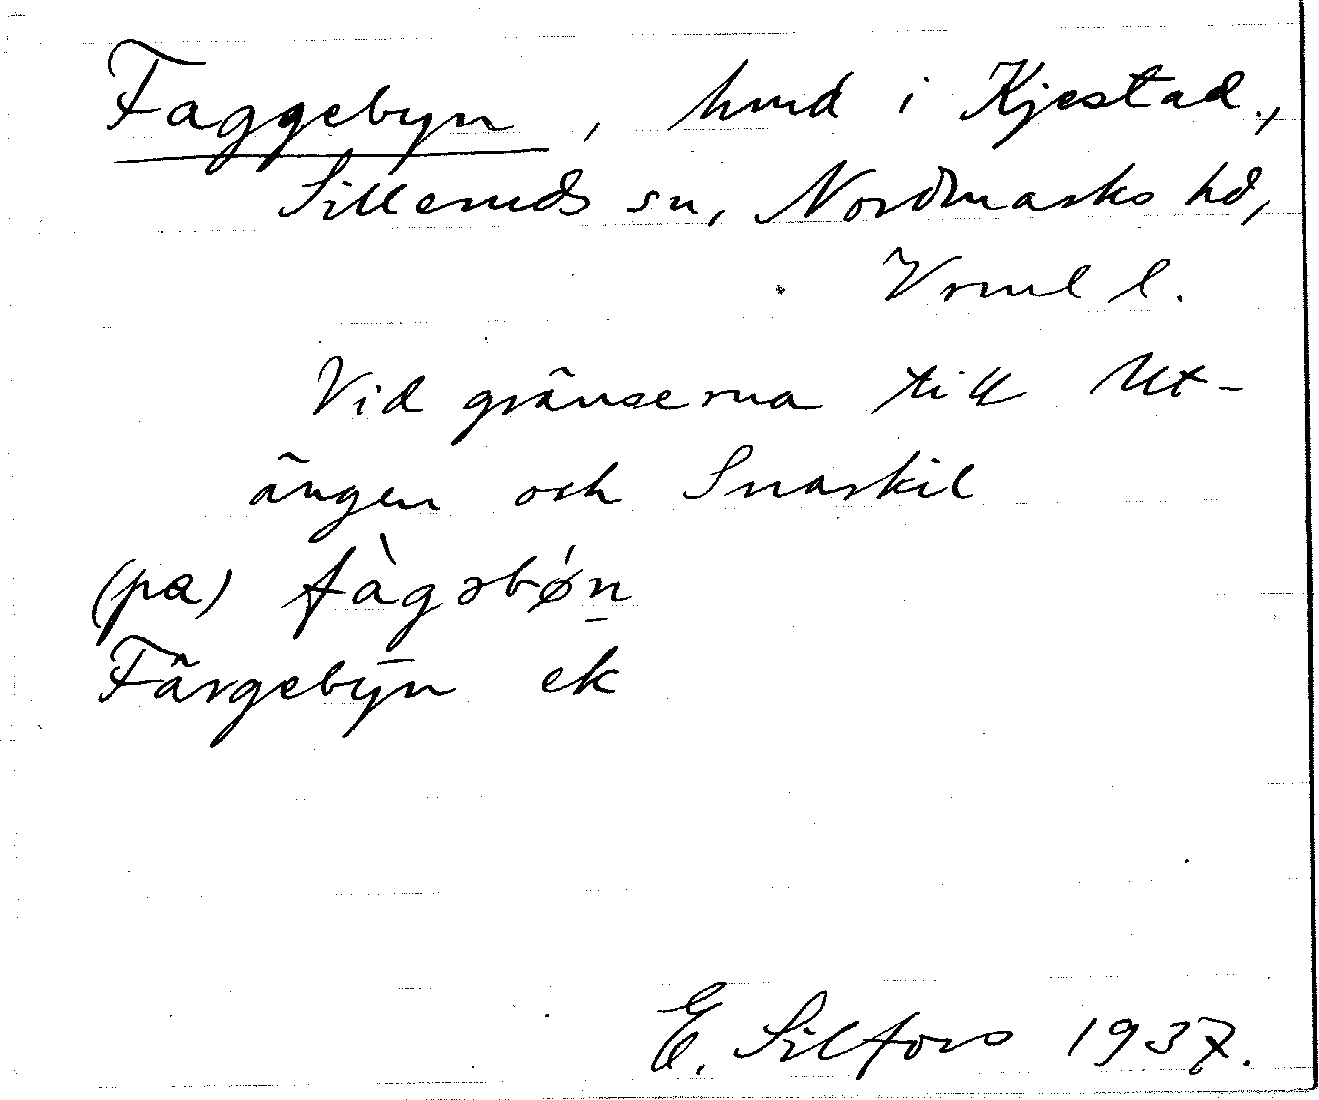 Faggebyn, hmd i Kjestad.,
Silleruds sn, Nordmarks hd,
Vrml l.
Vid gränserna till Ut-
ängen och Snarkil
(pa) fàgəbǿn
Färgebyn ek
E. Silfors 1937.